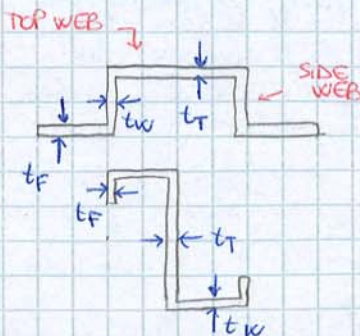 TOP WEB
SIDE
WEB
tW
tT
tF
tF
tT
tW